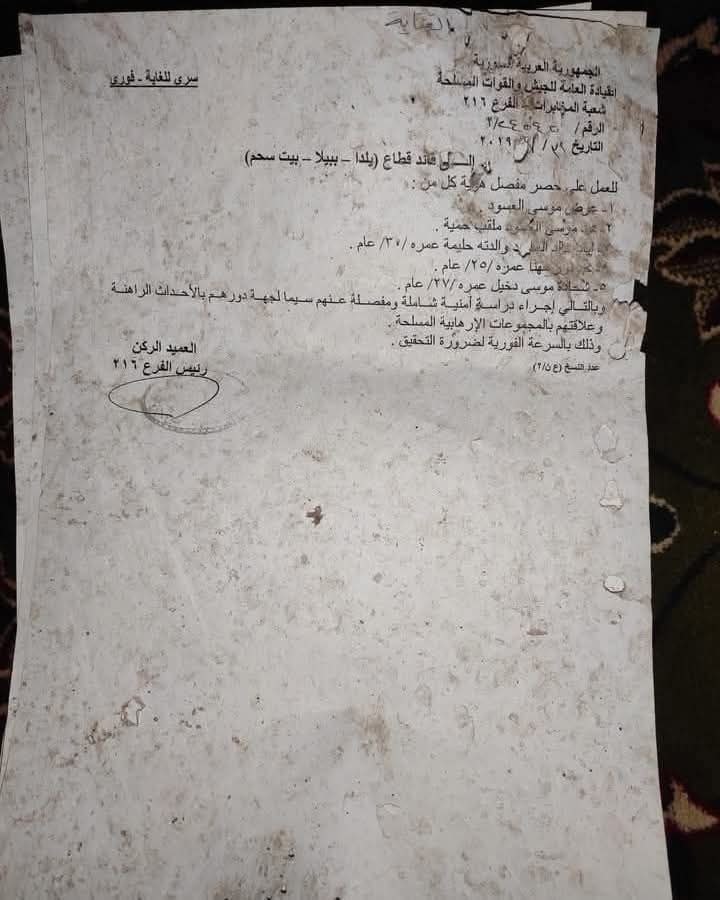 الجمهورية العربية السورية
القيادة العامة للجيش والقوات المسلحة
شعبة المخابرات - الفرع ٢١٦
الرقم /
التاريخ / / ٢٠١٩
سري للغاية - فوري
قائد قطاع (يلدا – ببيلا – بيت سحم)
للعمل على حصر مفصل هوية كل من :
١- عرض موسى العسود
٢- موسى ملقب حمية .
والدته حليمة عمره /٣٠/ عام .
عمره /٢٥/ عام .
٥- شحادة موسى دخيل عمره /٢٧/ عام .
وبالتالي إجراء دراسة أمنية شاملة ومفصلة عنهم سيما لجهة دورهم بالأحداث الراهنة
وعلاقتهم بالمجموعات الإرهابية المسلحة .
وذلك بالسرعة الفورية لضرورة التحقيق .
عدد النسخ (ع ن/٢)
العميد الركن
رئيس الفرع ٢١٦